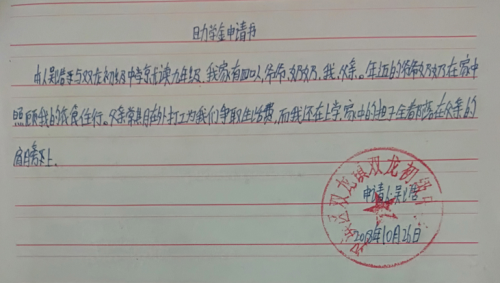 助学金申请书
本人吴语与双龙初级中学就读九年级,我家有四口人,爷爷、奶奶、我、父亲。年迈的爷爷奶奶在家中
照顾我的衣食住行。父亲常年在外打工为我们争取生活费,而我还在上学,家中的担子全都落在父亲的
肩膀上。
申请人:吴语
2018年10月26日
双龙镇双龙初级